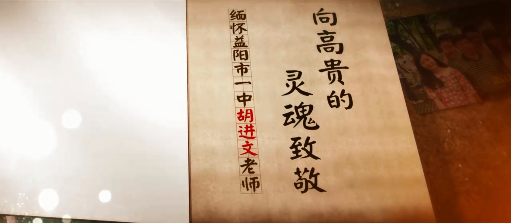 向高贵的
灵魂致敬
缅怀益阳市一中胡进文老师